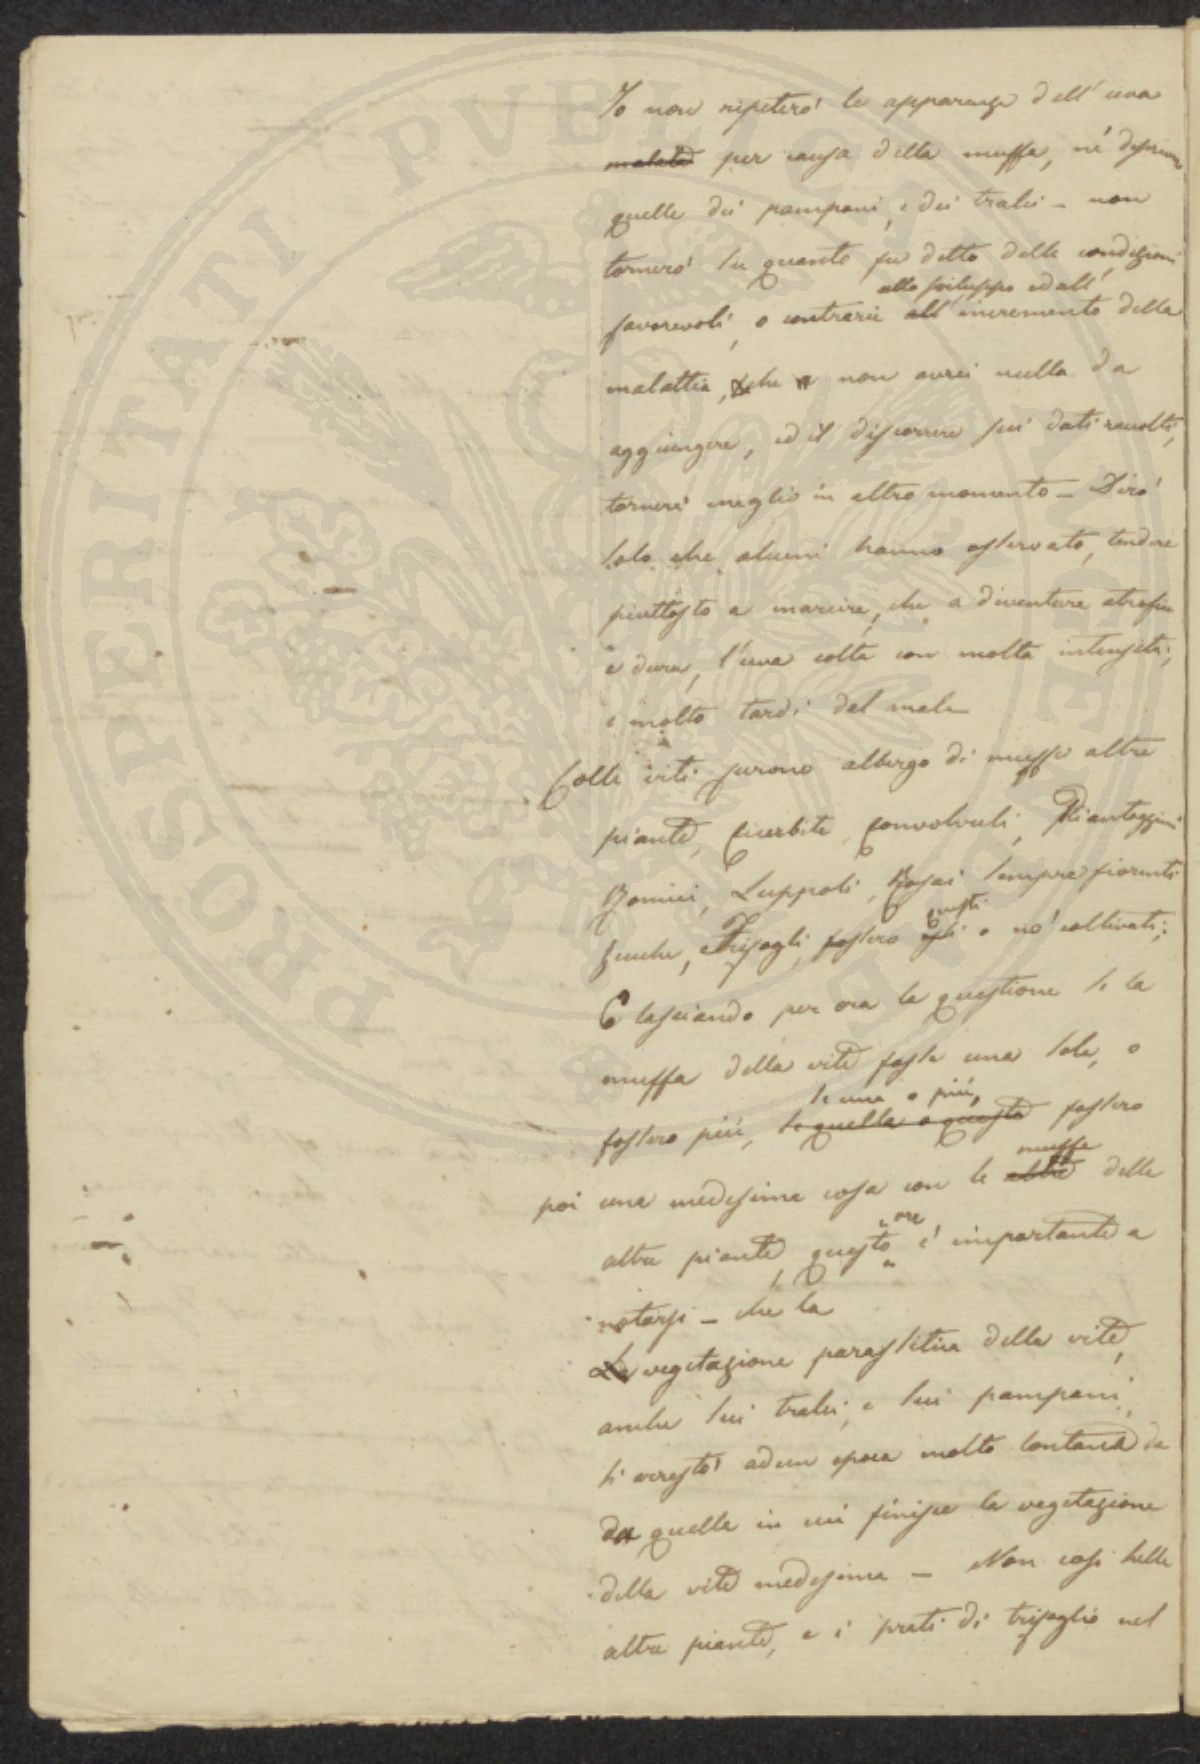 Io non ripeterò le apparenze dell'uva
malata per causa della muffa, nè descrivere
quelle dei pampani, e dei tralci - non
tornerò su quanto fu detto delle condizioni
allo sviluppo ed all'
favorevoli, o contrarie all'incremento della
malattia, che non avrei nulla da
aggiungere, ed il discorrere sui dati raccolti,
tornerà meglio in altro momento - Dirò
solo che alcuni hanno osservato, tendere
piuttosto a marcire, che a diventare atrofica
e dura, l'uva colta con molta intensità,
e molto tardi dal male
Colle viti furono albergo di muffe altre
piante, Cicerbite, Convolvuli, Piantaggini
Romici, Luppoli, Rosai sempre fiorenti
questi
Zucche, Trifogli, fossero egli o nò coltivati;
E lasciando per ora la questione se la
muffa della vite fosse una sola, o
se una o più,
fossero più, se quella o queste fossero
muffe
poi una medesima cosa con le altre delle
ora
altre piante, questo è importante a
notarsi - che la
La vegetazione parassitica della vite,
anche sui tralci, e sui pampani,
si arrestò ad un epoca molto lontana da
da quella in cui finisce la vegetazione
della vite medesima - Non così sulle
altre piante, e i prati di trifoglio nel
PROSPERITATI PVBLICAE